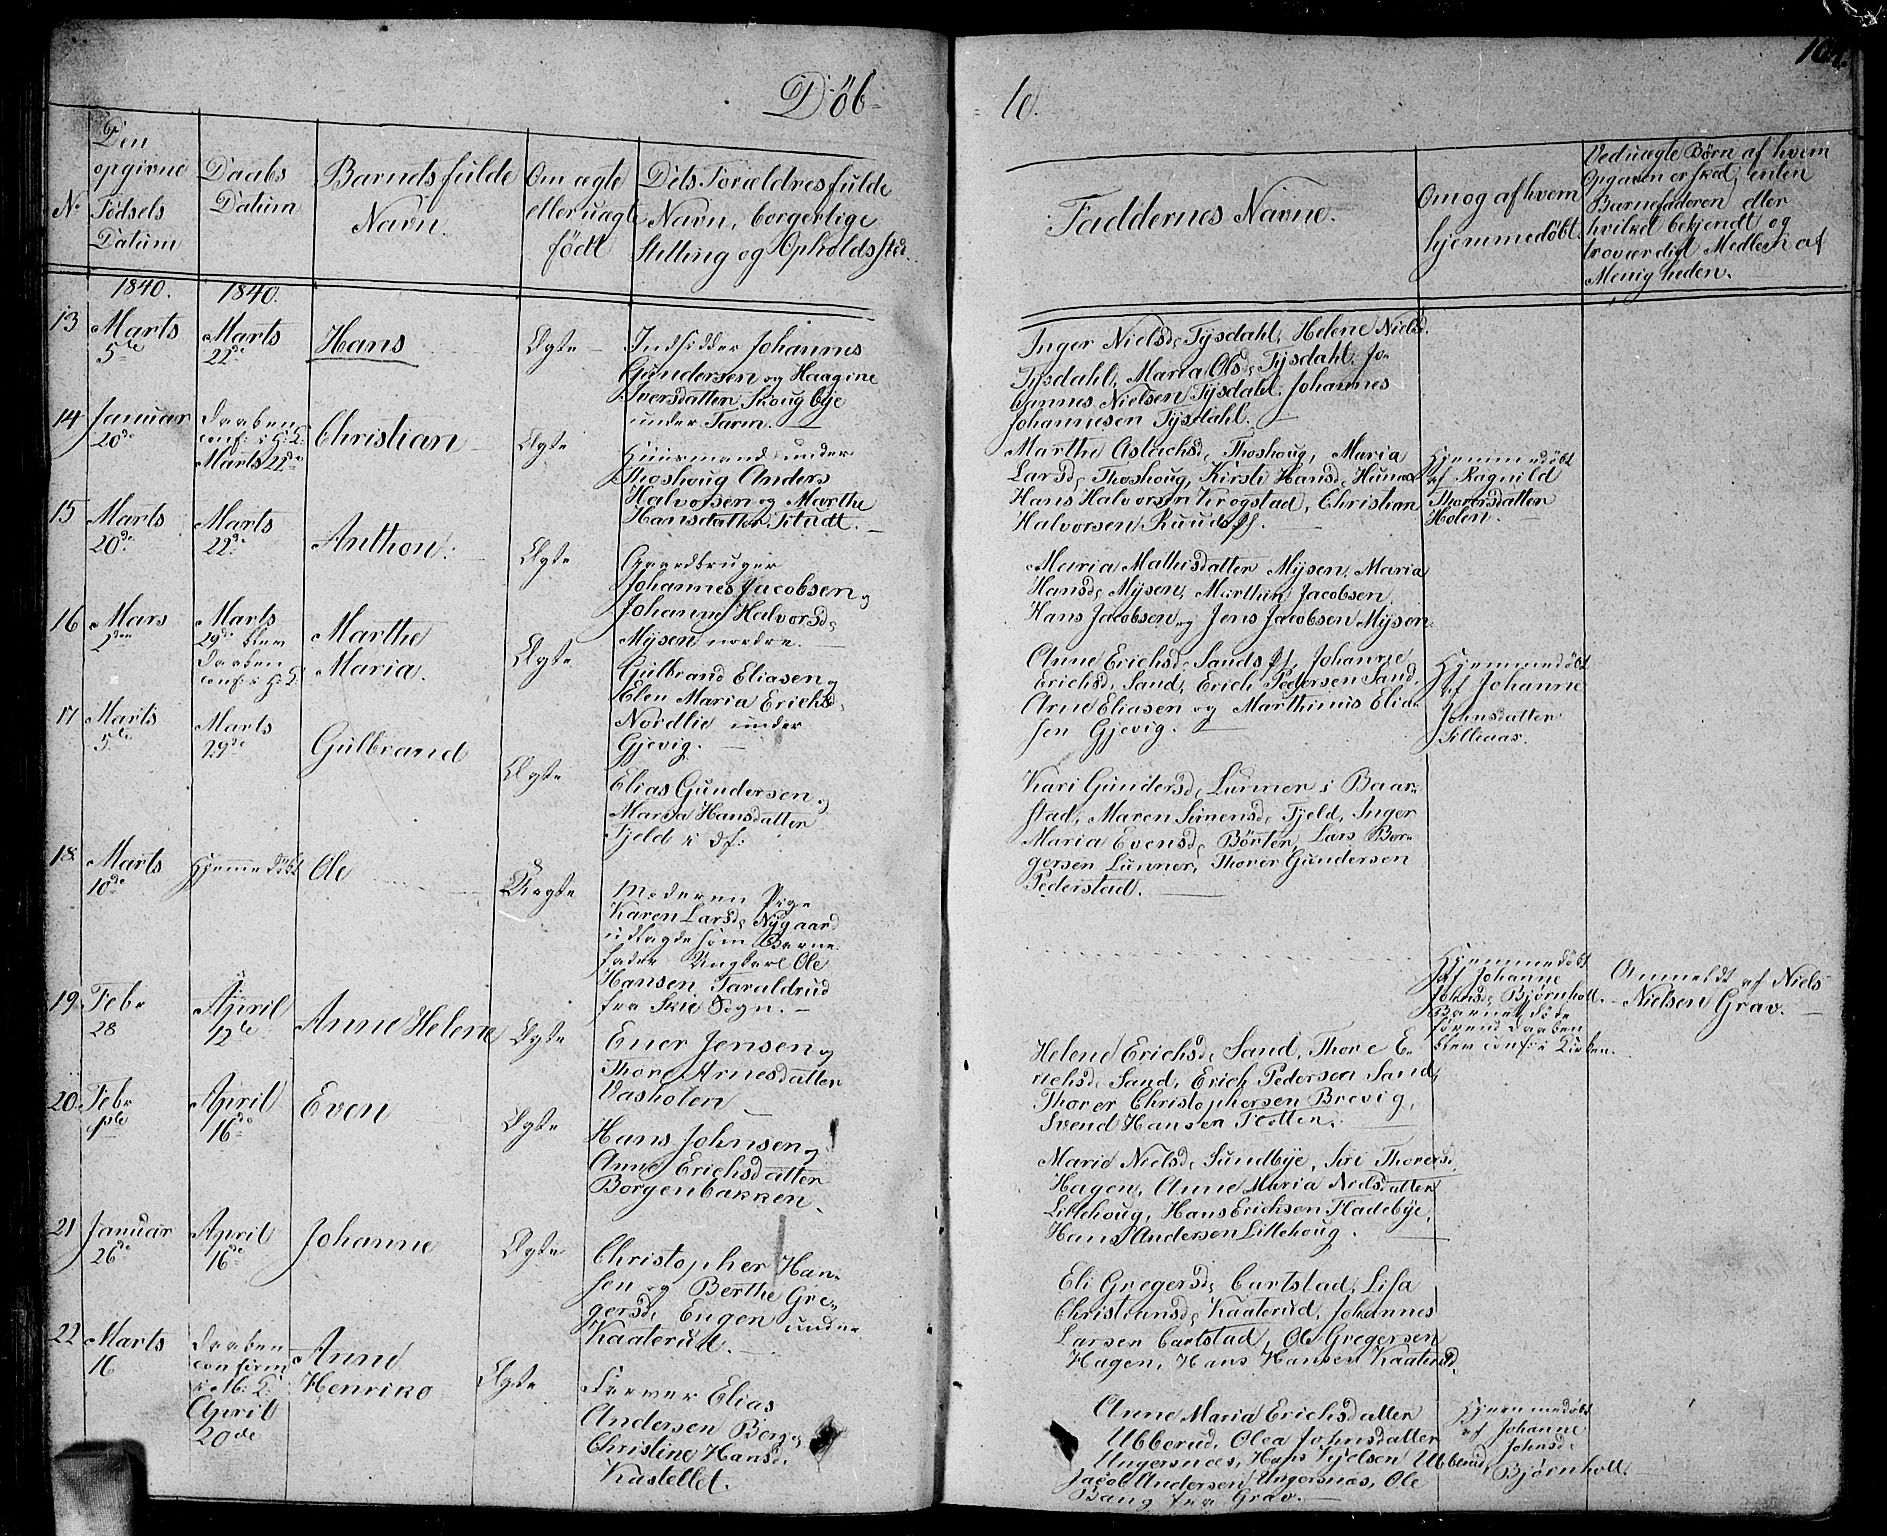 Døb-
te.
Den
opgivne
Fødsels
Datum
No
Daabs
Datum
Barnets fulde
Navn.
Om ægte
eller uægte
født
Dets Forældres fulde
Navn, borgerlige
Stilling og Opholdssted.
Faddernes Navne.
Om og af hvem
hjemmedøbt
Ved uægte Børn af hvem
Opgaven er skeet, enten
Barnefaderen eller
hvilket bekjendt og
troværdigt Medlem af
Menigheden.
1840.
1840.
13
Marts
5te
Marts
22de
Hans
Ægte
Indsidder Johannes
Gundersen og Haagine
Iversdatter Skougbye
under Tarm.
Inger Nielsd. Tysdahl, Helene Nielsd.
Tysdahl, Maria Olsd. Tysdahl, Jo-
hannes Nielsen Tysdahl, Johannes
Johannesen Tysdahl.
14
Januar
20de
Daaben
conf: i H: K:
Marts 22de
Christian
Ægte
Huusmand under
Thoshoug Anders
Halvorsen og Marthe
Hansdatter
Marthe Aslachsd. Thoshoug, Maria
Larsd. Thoshoug, Kirsti Hansd.
Hans Halvorsen Krogstad, Christian
Halvorsen Ruuds Pl.
Hjemmedøbt
af Ragnild
Thorersdatter
Holen.
15
Marts
20de
Marts
22de
Anthon.
Ægte
Gaardbruger
Johannes Jacobsen og
Johanne Halvorsd.
Mysen nordre.
Maria Mathisdatter Mysen, Maria
Hansd. Mysen, Marthin Jacobsen,
Hans Jacobsen og Jens Jacobsen Mysen.
16
Mars
2den
Marts
29de blev
Daaben
conf: i H: K:
Marthe
Maria.
Ægte
Gulbrand Eliasen og
Elen Maria Erichsd.
Nordlie under
Gjevig.
Anne Erichsd. Sands Pl, Johanne
Erichsd. Sand, Erich Pedersen Sand,
Arne Eliasen og Marthinus Elia-
sen Gjevig.
Hjemmedøbt
af Johanne
Johnsdatter
17
Marts
5te
Marts
29de
Gulbrand
Ægte
Elias Gundersen og
Maria Hansdatter
Fjeld
Kari Gundersd. Lunner i Baar-
stad, Maren Simensd. Fjeld, Inger
Maria Evensd. Børter, Lars Bor-
gersen Lunner, Thorer Gundersen
Pederstad.
18
Marts
10de
Hjemmedøbt
Ole
Uægte
Moderen Pige
Karen Larsd. Nygaard
udlagde som Barne-
fader Ungkarl Ole
Hansen Taraldrud
fra Skie Sogn.
Hjemmedøbt
af Johanne
Johnsd. Bjørnholt.
Barnet døde
førend Daaben
blev conf: i Kirken.
Anmeldt af Niels
Nielsen Grav.
19
Febr
28
April
12te
Anne Helene
Ægte
Ener Jensen og
Thore Arnesdatter
Vasholen
Helene Erichsd. Sand, Thore E-
richsd. Sand, Erich Pedersen Sand,
Thorer Christophersen Brevig,
Svend Hansen
20
Febr
April
16de
Even
Ægte
Hans Johnsen og
Anne Erichsdatter
Borgenbakken.
Marie Nielsd. Sundbye, Siri Thorersd.
Hagen, Anne Maria Nielsdatter
Lillehoug, Hans Erichsen Fladebye,
Hans Andersen Lillehoug.
21
Januar
26de
April
16de
Johanne
Ægte
Christopher Han-
sen og Berthe Gre-
gersd. Engen under
Kaaterud.
Eli Gregersd. Cartstad, Lisa
Christiansd. Kaaterud, Johannes
Larsen Cartstad, Ole Gregersen
Hagen, Hans Hansen Kaaterud.
22
Marts
16
Daaben
confirm:
April
20de
Anne
Henrike
Ægte
Farver Elias
Andersen Berg og
Christine Hansd.
Kastellet.
Anne Maria Erichsdatter
Ubberud, Olea Johnsdatter
Ungersnæs, Hans Kjelsen Ubberud,
Jacob Andersen Ungersnæs, Ole
Bang fra Grav.
Hjemmedøbt
af Johanne
Johnsd.
Bjørnholt.